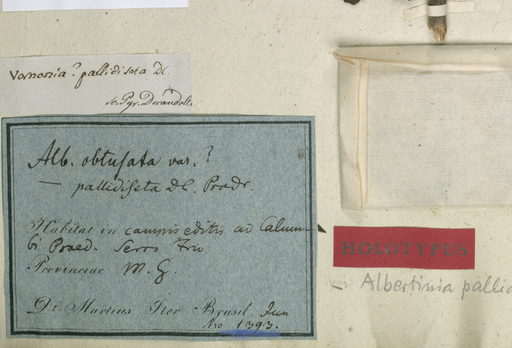 Vernonia? pallidiseta DC.
Alb. obtusata var.?
— pallidiseta DC. Prodr.
Habitat in campis editis ad Calum-
bi Praed. Serro Frio
Provinciae M. G.
Dr Martius Iter Brasil. Jun
No 1393.
HOLOTYPUS
— Albertinia pallid